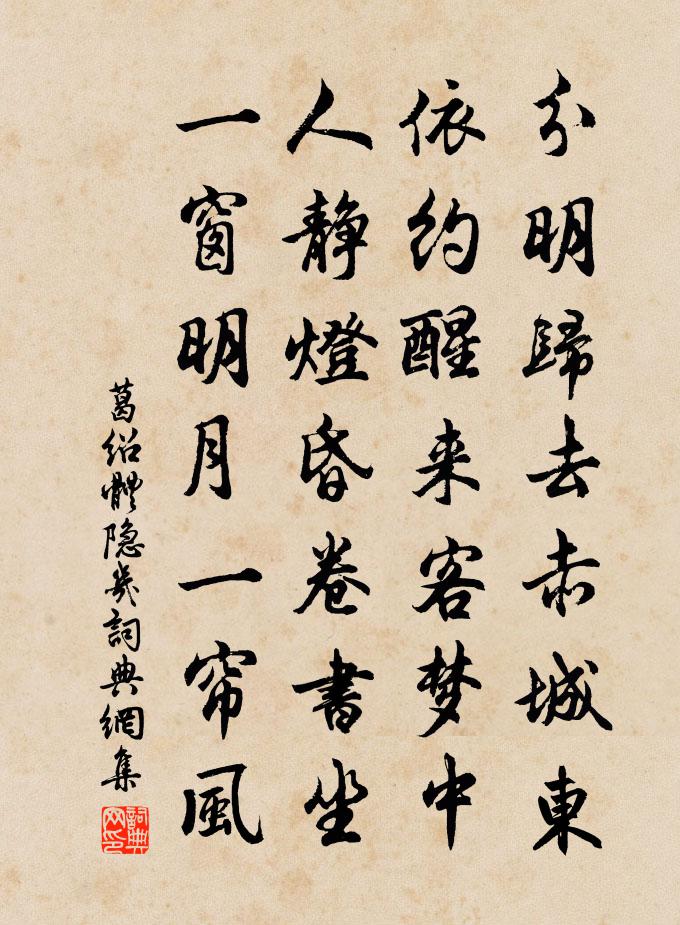 分明歸去赤城東
依約醒来客梦中
人靜燈昏卷書坐
一窗明月一帘風
葛绍體隐几詞典網集
詞典网印